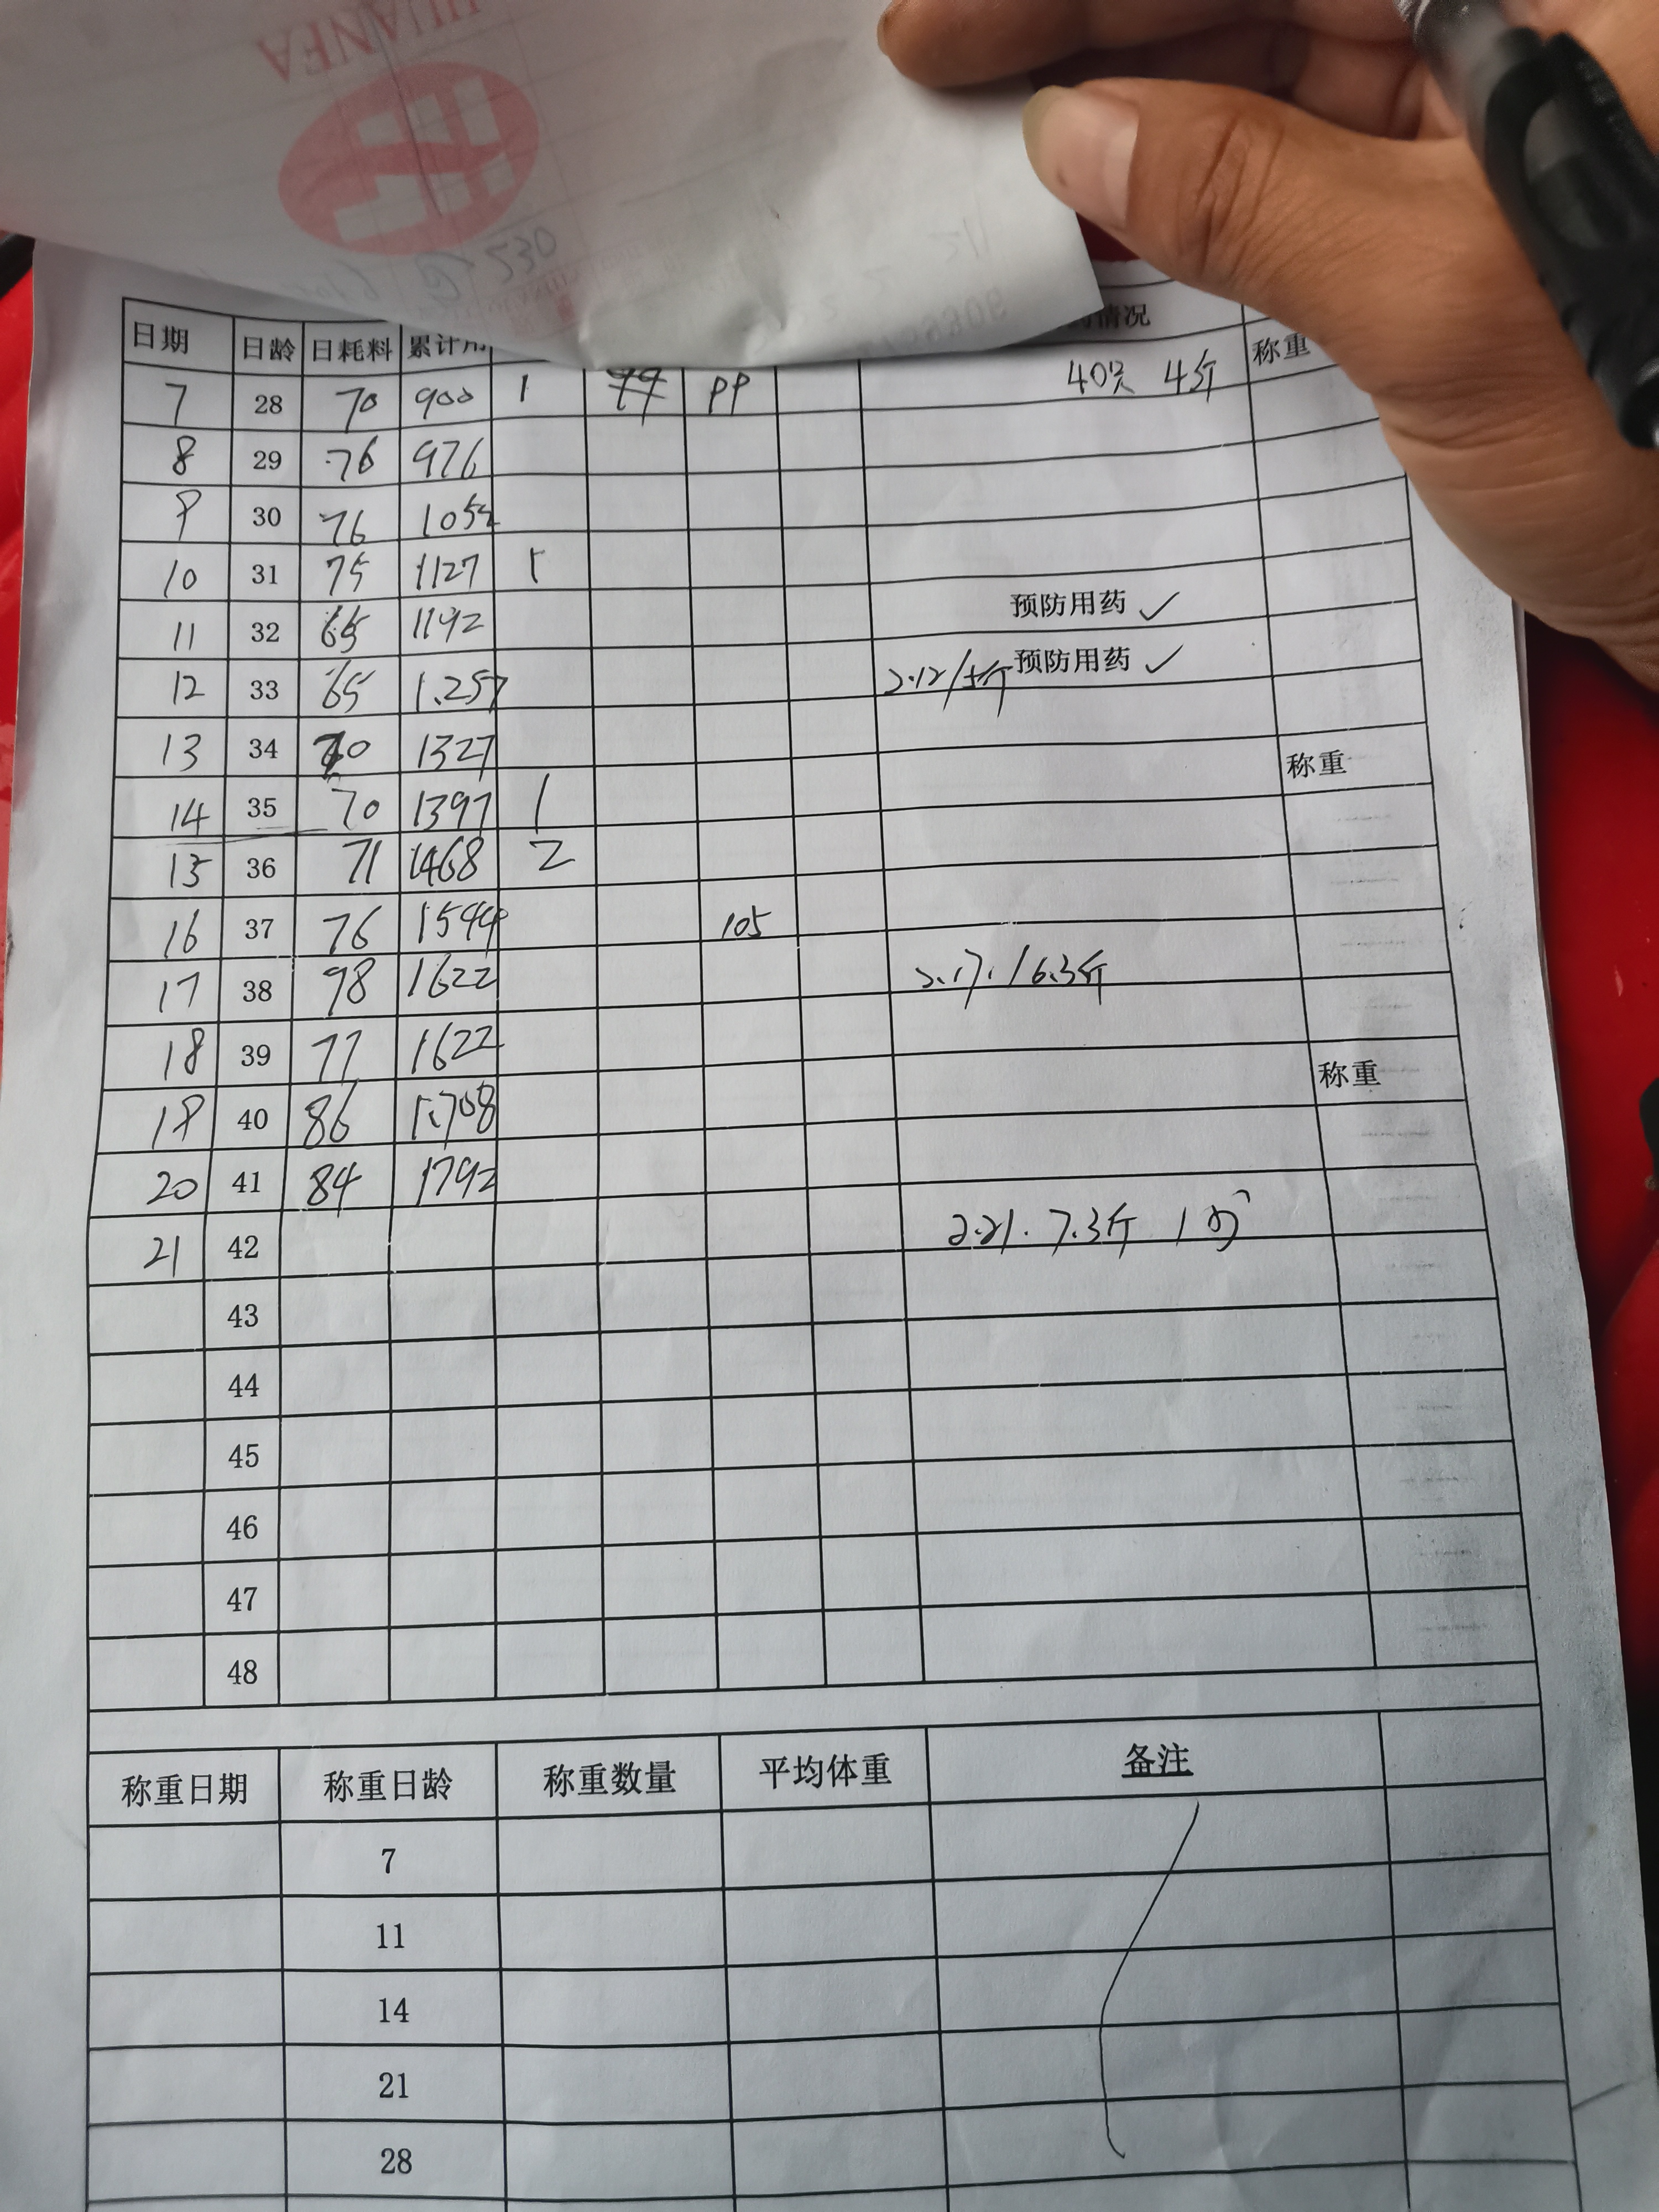 HUANFA
230
日期 日龄 日耗料 累计用 情况 称重
7 28 70 900 1 40只 4斤
8 29 76 976
9 30 76 1052
10 31 75 1127 1
预防用药 ✓
11 32 65 1192
12 33 65 1.257 2.12/5斤 预防用药 ✓
13 34 70 1327
称重
14 35 70 1397 1
15 36 71 1468 2
16 37 76 1544 105
17 38 98 1622 2.17. /6.3斤
18 39 77 1622
称重
19 40 86 1.708
20 41 84 1792
21 42 2.21. 7.3斤 1
43
44
45
46
47
48
称重日期 称重日龄 称重数量 平均体重 备注
7
11
14
21
28